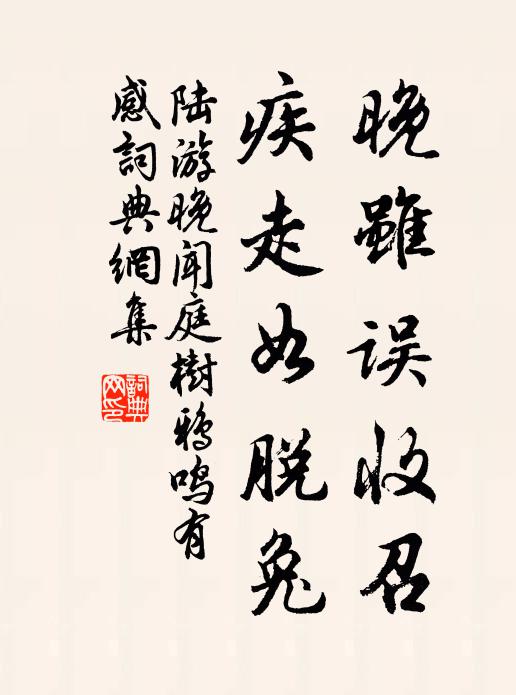 晚雖误收召
疾走如脱兔
陆游晚闻庭樹鴉鸣有
感詞典網集
詞典
网印